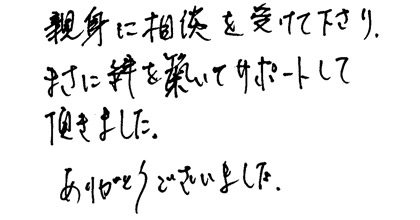 親身に相談を受けて下さり、
まさに絆を築いてサポートして
頂きました。
ありがとうございました。